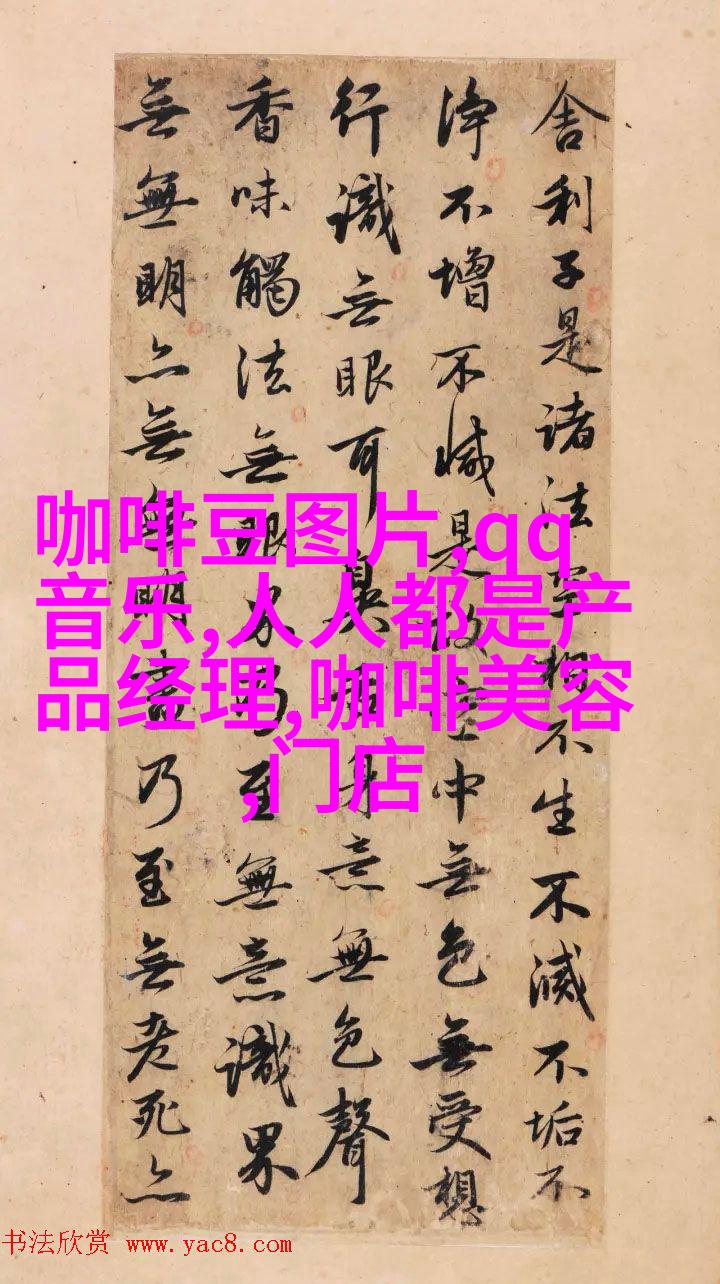 舍利子是諸法空相不生不滅不垢不
淨不增不減是故空中無色無受想
行識無眼耳鼻舌身意無色聲
香味觸法無眼界乃至無意識界
無無明亦無無明盡乃至無老死亦
咖啡豆图片,qq
音乐,人人都是产
品经理,咖啡美容
,门店
书法欣赏 www.yac8.com